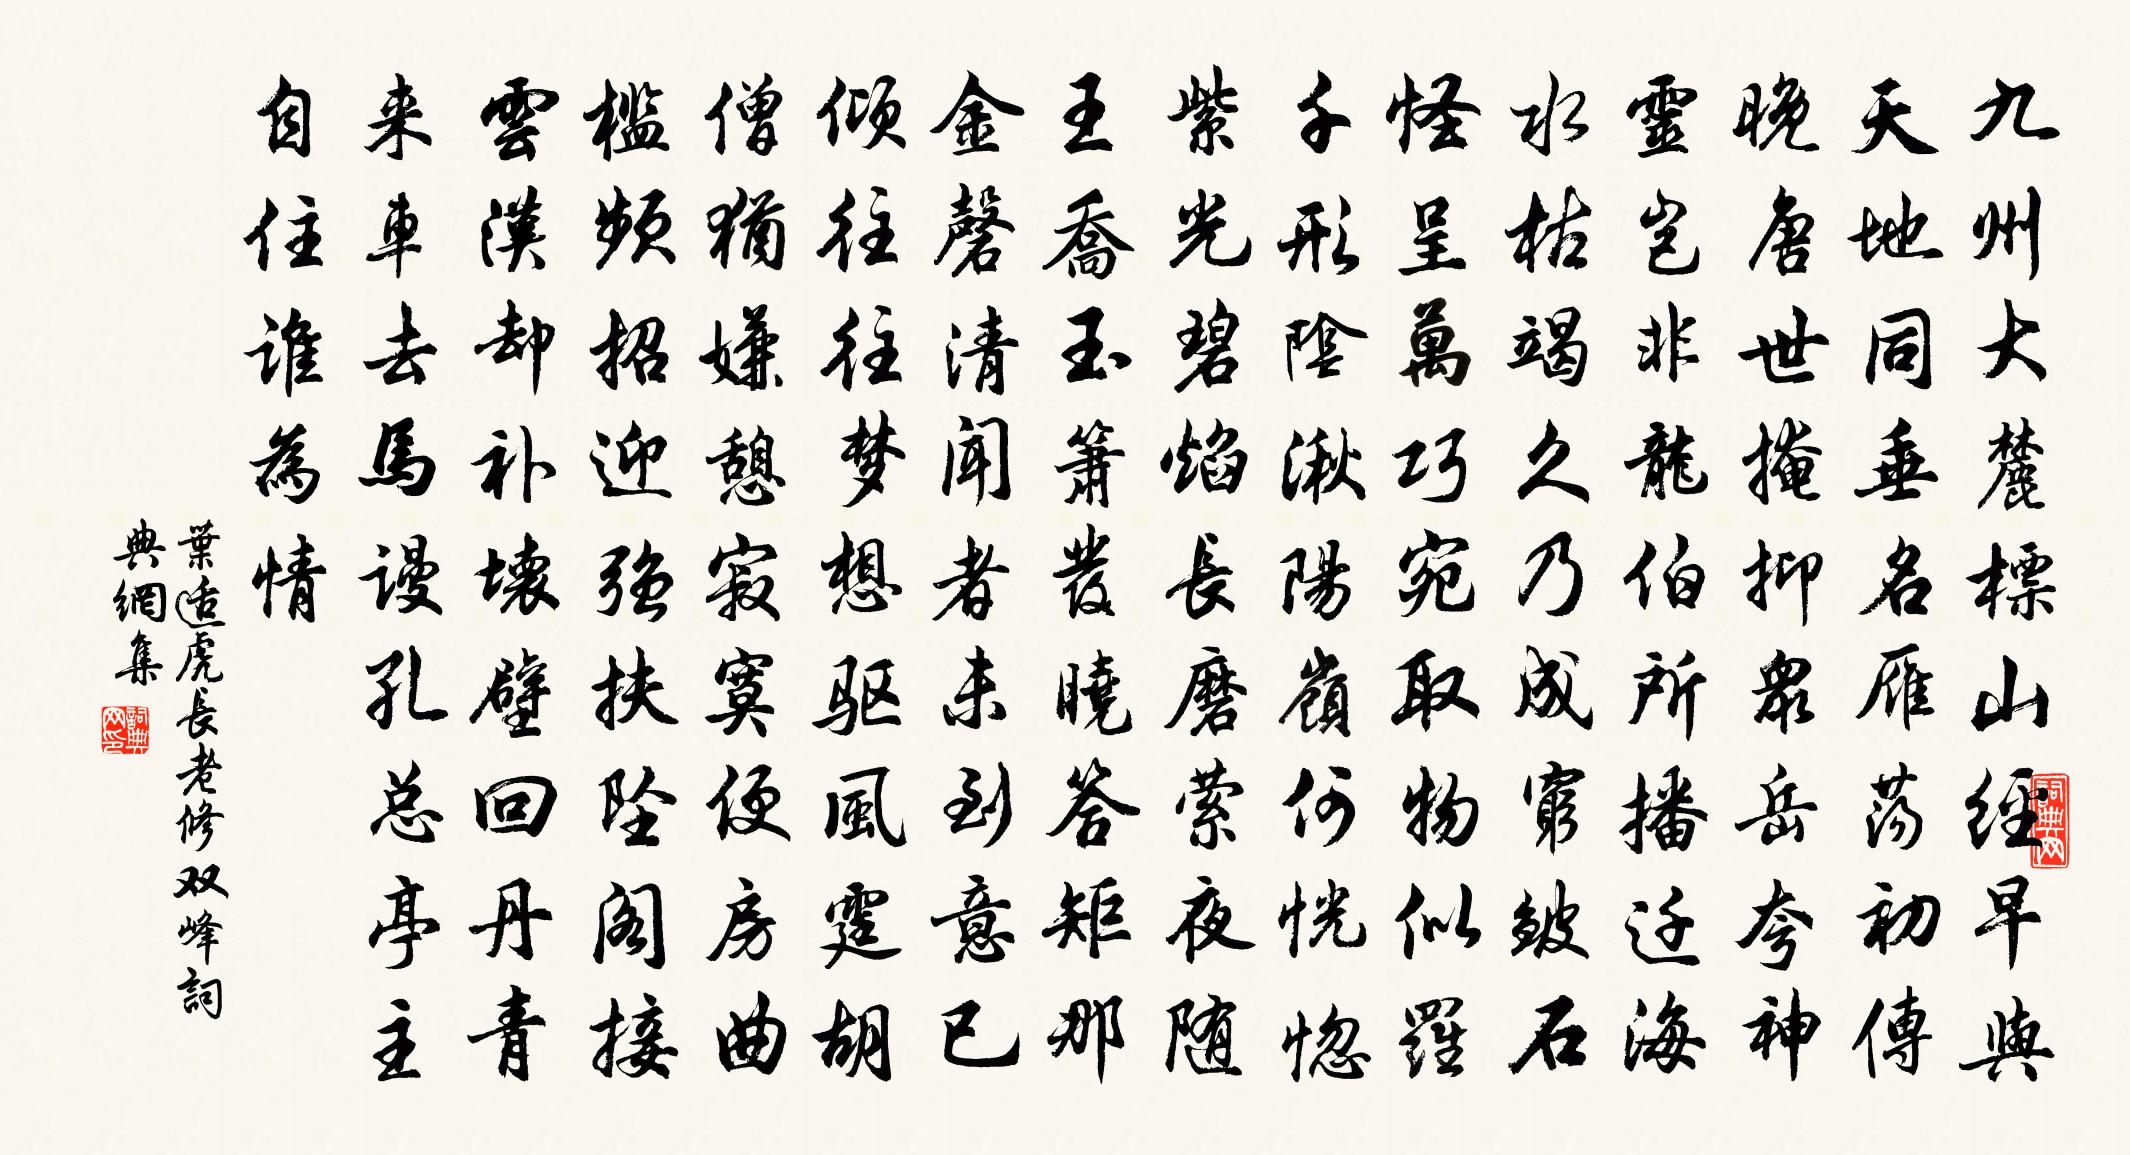 九州大麓標山經早與
天地同垂名雁蕩初傳
晚唐世掩抑眾岳夸神
靈岂非龍伯所播迁海
水枯竭久乃成窮皴石
怪呈萬巧宛取物似羅
千形陰湫陽嶺何恍惚
紫光碧焰長磨萦夜随
王喬玉簫發曉答矩那
金磬清聞者未到意已
傾往往梦想驱風霆胡
僧猶嫌憩寂寞便房曲
檻频招迎强扶坠阁接
雲漢却补壊壁回丹青
来車去馬谩孔总亭主
自住谁為情
葉适虎長老修双峰詞
典網集
詞典网
詞典网印